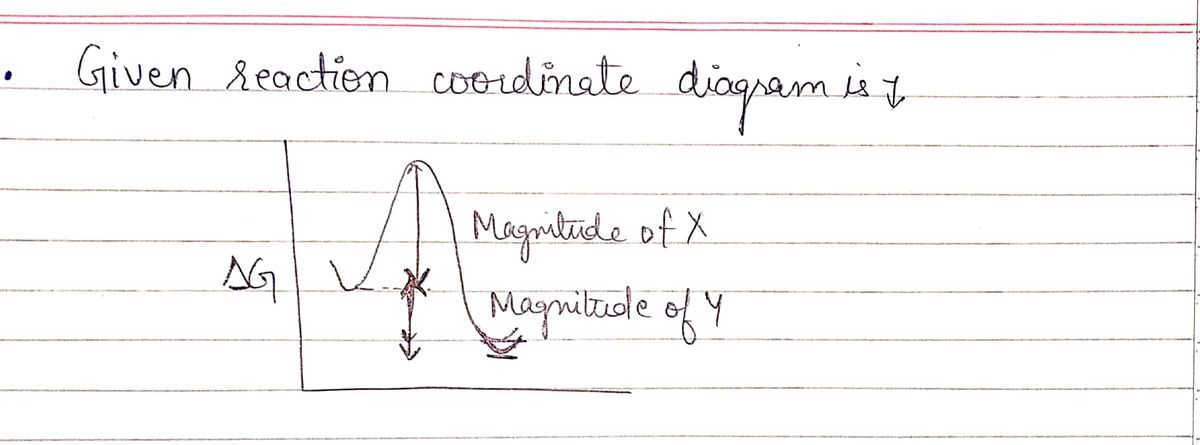 . Given reaction coordinate diagram is ↓
Magnitude of X
ΔG
Magnitude of Y